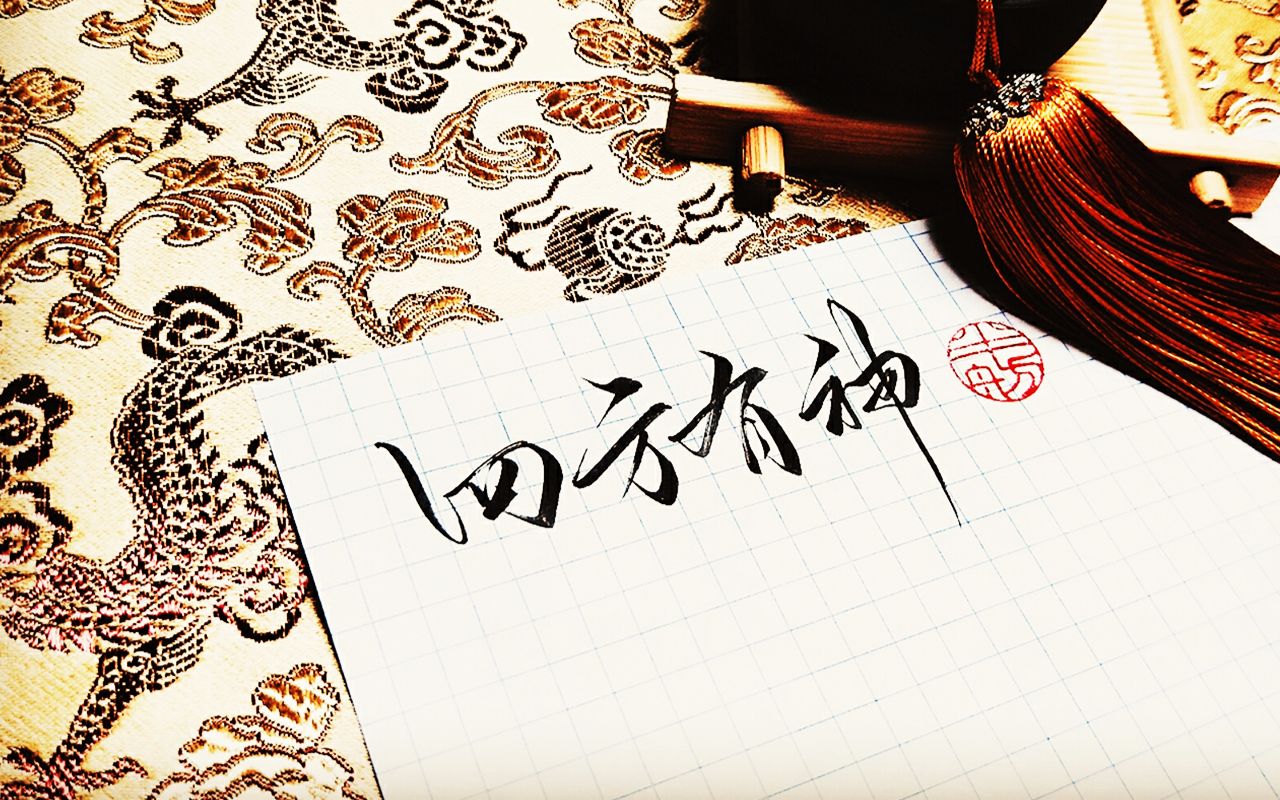 四方有神